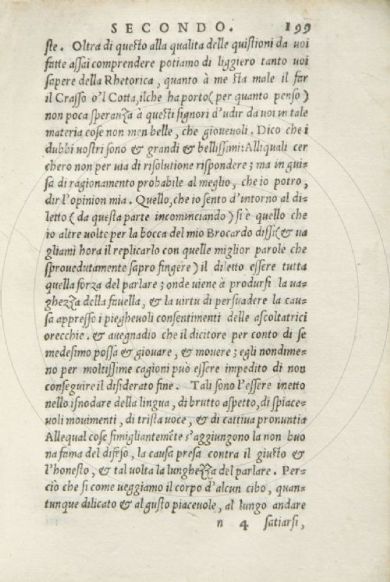 SECONDO. 199
ste. Oltra di questo alla qualita delle quistioni da uoi
fatte assai comprendere potiamo di liggiero tanto uoi
sapere della Rhetorica, quanto à me sta male il far
il Crasso o'l Cotta, ilche ha porto (per quanto penso)
non poca speranza à questi signori d'udir da uoi in tale
materia cose non men belle, che gioueuoli. Dico che i
dubbi uostri sono & grandi & bellissimi: Alli quali cer
cherò non per uia di risolutione rispondere; ma in gui-
sa di ragionamento probabile al meglio, che io potro,
dir l'opinion mia. Quello, che io sento d'intorno al di-
letto (da questa parte incominciando) si è quello che
io altre uolte per la bocca del mio Brocardo dissi (& ua
gliami hora il replicarlo con quelle miglior parole che
sproueditamente sapro fingere) il diletto essere tutta
quella forza del parlare; onde uiene à prodursi la ua-
ghezza della fauella, & la uirtu di persuadere la cau-
sa appresso i piegheuoli consentimenti delle ascoltatrici
orecchie. & auegnadio che il dicitore per conto di se
medesimo possa & giouare, & mouere; egli nondime-
no per moltissime cagioni può essere impedito di non
conseguire il disiderato fine. Tali sono l'essere inetto
nello isnodare della lingua, di brutto aspetto, di spiace-
uoli mouimenti, di trista uoce, & di cattiua pronuntia
Alle qual cose simigliantemēte s'aggiungono la non buo
na fama del dissso, la causa presa contra il giusto &
l'honesto, & tal uolta la lunghezza del parlare. Per-
ciò che si come ueggiamo il corpo d'alcun cibo, quan-
tunque dilicato & al gusto piaceuole, al lungo andare
n 4 satiarsi,